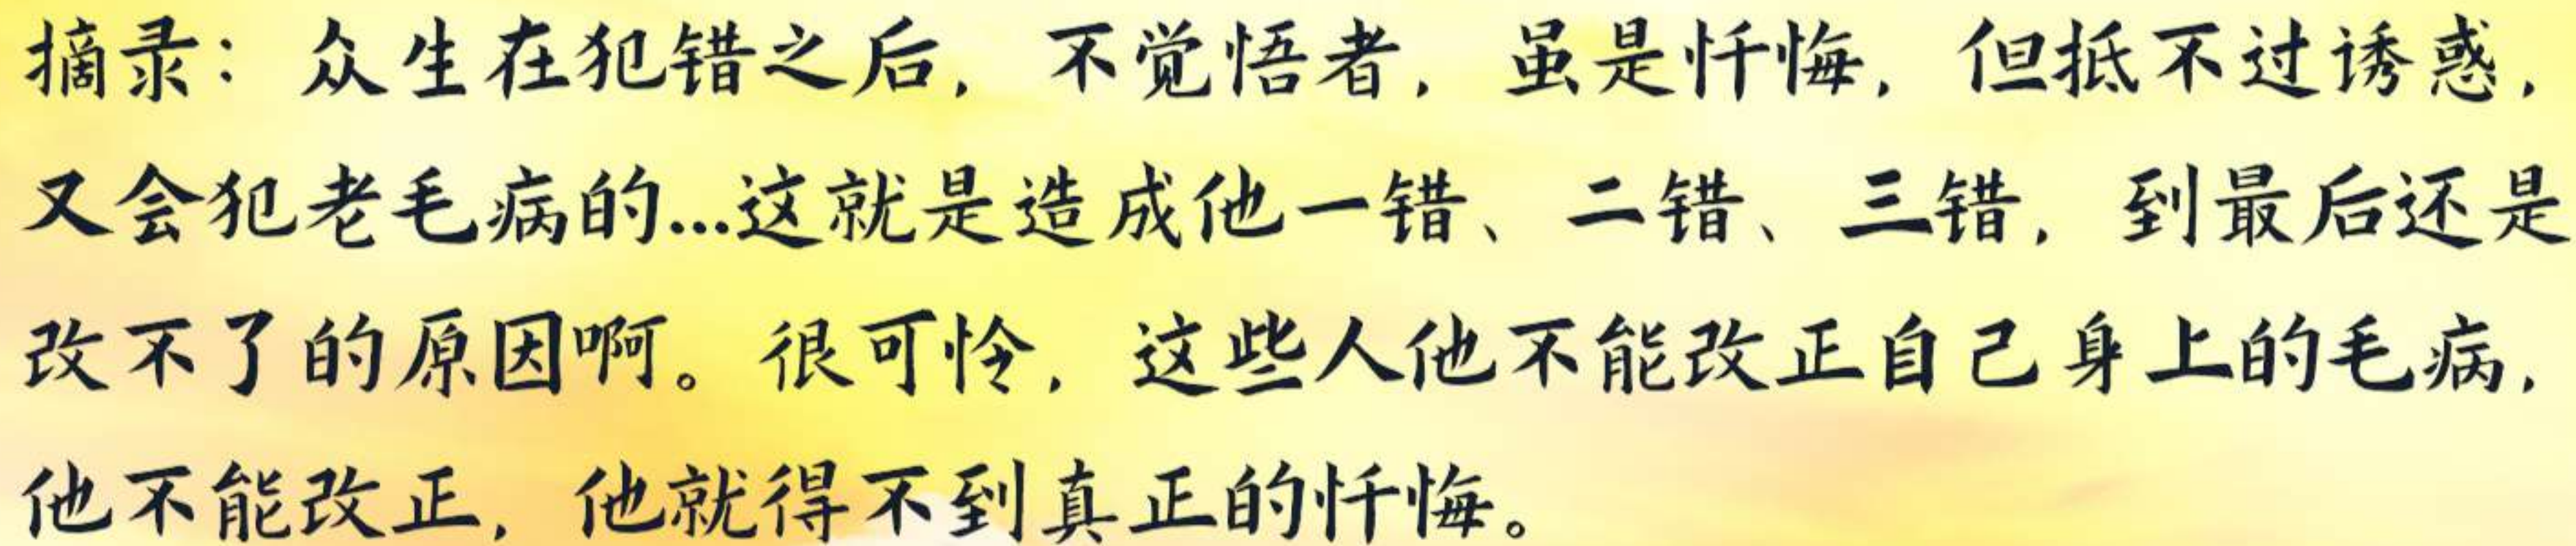 摘录：众生在犯错之后，不觉悟者，虽是忏悔，但抵不过诱惑，
又会犯老毛病的...这就是造成他一错、二错、三错，到最后还是
改不了的原因啊。很可怜，这些人他不能改正自己身上的毛病，
他不能改正，他就得不到真正的忏悔。